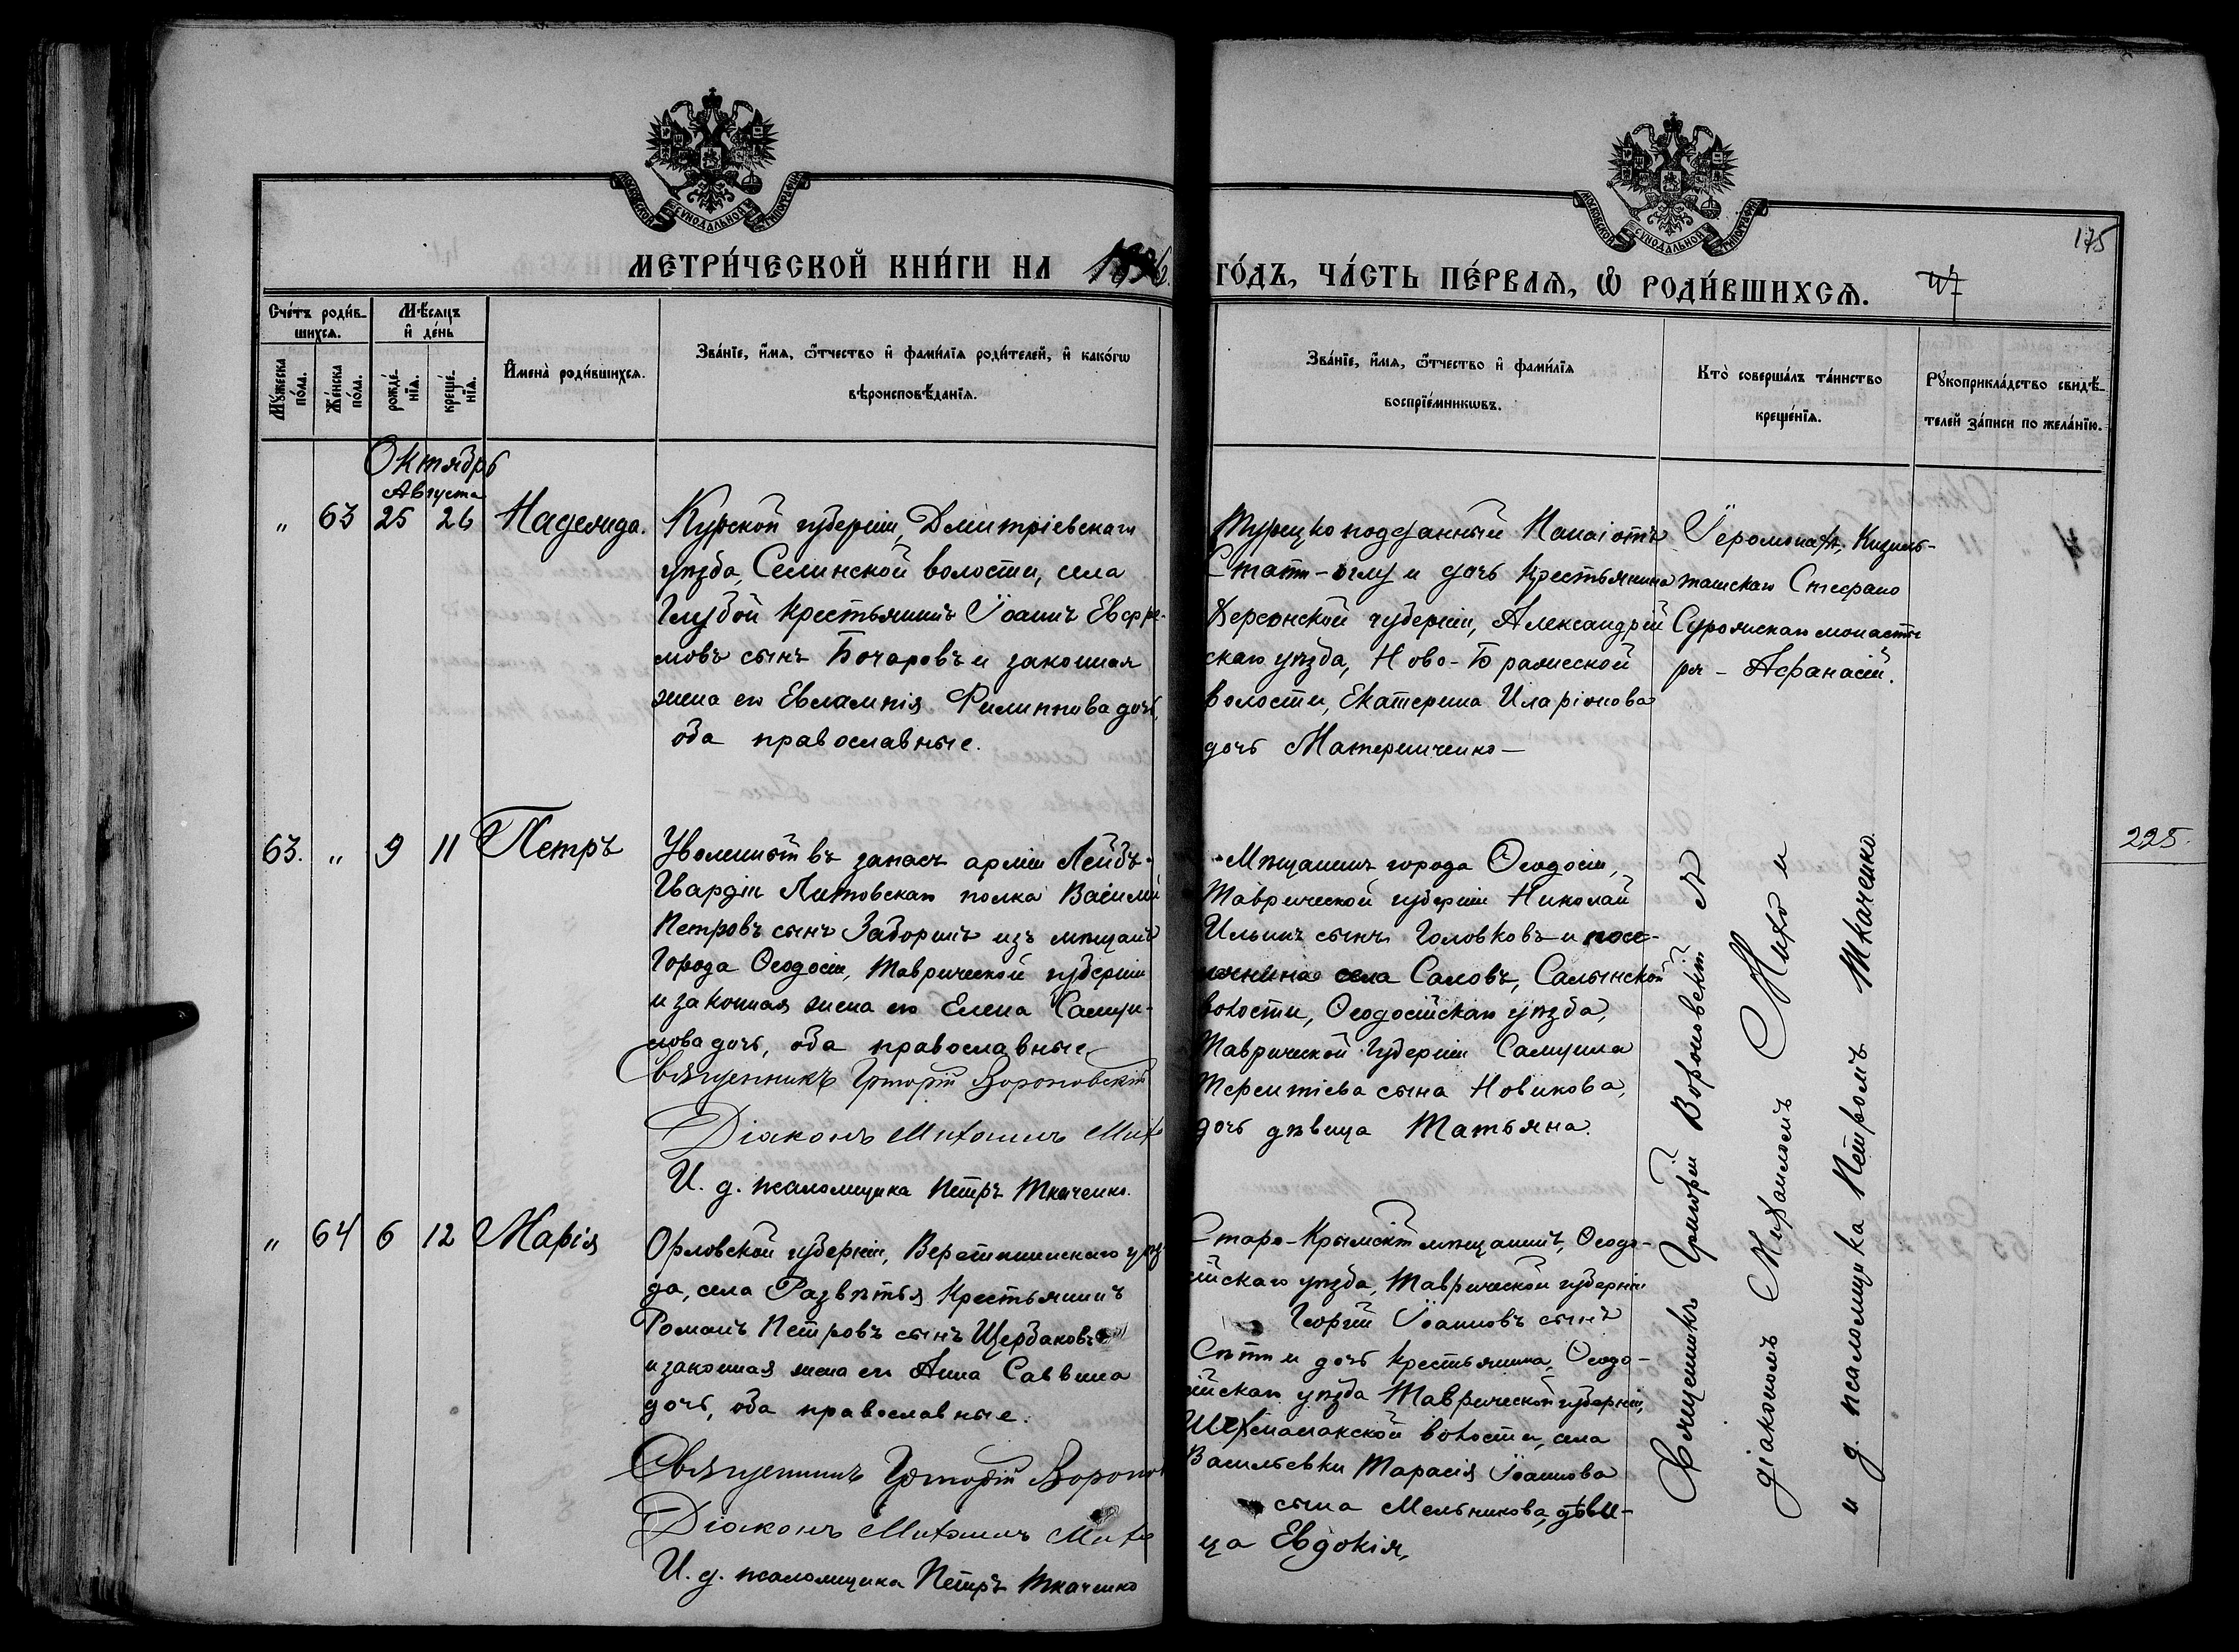 МОСКОВСКОЙ СѴНОДАЛЬНОЙ ТИПОГРАФІИ
МОСКОВСКОЙ СѴНОДАЛЬНОЙ ТИПОГРАФІИ
175
МЕТРИ́ЧЕСКОЙ КНИ́ГИ НА 1896. ГО́ДЪ, ЧА́СТЬ ПЕ́РВАѦ, Ѡ҆ РОДИ́ВШИХСѦ.
Сче́тъ роди́в-
шихсѧ.
Мꙋ́жеска по́ла.
Же́нска по́ла.
Мѣ́сѧцъ
и҆ де́нь
рожде́-
нїѧ.
креще́-
нїѧ.
И҆мена̀ роди́вшихсѧ.
Зва́нїе, и҆́мѧ, ѻ҆́тчество и҆ фами́лїѧ роди́телей, и҆ како́гѡ
вѣроисповѣ́данїѧ.
Зва́нїе, и҆́мѧ, ѻ҆́тчество и҆ фами́лїѧ
воспрїе́мникѡвъ.
Кто̀ соверша́лъ та́инство
креще́нїѧ.
Рꙋкоприкла́дство свидѣ́-
телей за́писи по жела́нїю.
Октябрь
Августа
" 63 25 26 Надежда.
Курской губерніи, Дмитріевскаго
уѣзда, Селинской волости, села
Глубой крестьянинъ Іоаннъ Евфре-
мовъ сынъ Бочаровъ и законная
жена его Евлампія Филиппова дочь,
оба православные.
Турецко подданный Панаіотъ
Стати-оглу и дочь крестьянина
Херсонской губерніи, Александрій
скаго уѣзда, Ново-Пражеской
волости, Екатерина Иларіонова
дочь Материченко —
Іеромонахъ, Кизиль-
ташскаго Стефано
Сурожскаго монасты
ря - Афанасій.
63. " 9 11 Петръ
Уволенный въ запасъ арміи Лейбъ-
Гвардіи Литовскаго полка Василій
Петровъ сынъ Заборинъ изъ мѣщанъ
города Ѳеодосіи, Таврической губерніи
и законная жена его Елена Самуи-
лова дочь, оба православные
Священникъ Григорій Вороновскій
Діаконъ Михаилъ Михо
И. д. псаломщика Петръ Ткаченко.
Мѣщанинъ города Ѳеодосіи,
Таврической губерніи Николай
Ильинъ сынъ Головковъ и посе-
лянина села Саловъ, Салынской
волости, Ѳеодосійскаго уѣзда,
Таврической губерніи Самуила
Терентіева сына Новикова,
дочь дѣвица Татьяна.
Священникъ Григорій Вороновскій съ
діакономъ Михаиломъ Михо и
и д. псаломщика Петромъ Ткаченко.
225.
" 64 6 12 Марія
Орловской губерніи,
да, села Развѣтья крестьянинъ
Романъ Петровъ сынъ Щербаковъ
и законная жена его Анна Саввина
дочь, оба православные.
Священникъ Григорій Воронов
Діаконъ Михаилъ Михо
И. д. псаломщика Петръ Ткаченко
Старо-Крымскій мѣщанинъ, Ѳеодо-
сійскаго уѣзда, Таврической губерніи
Георгій Іоанновъ сынъ
и дочь крестьянина, Ѳеодо-
сійскаго уѣзда Таврической губерніи,
волости, села
Васильевки Тарасія Іоаннова
сына Мельникова, дѣви-
ца Евдокія,